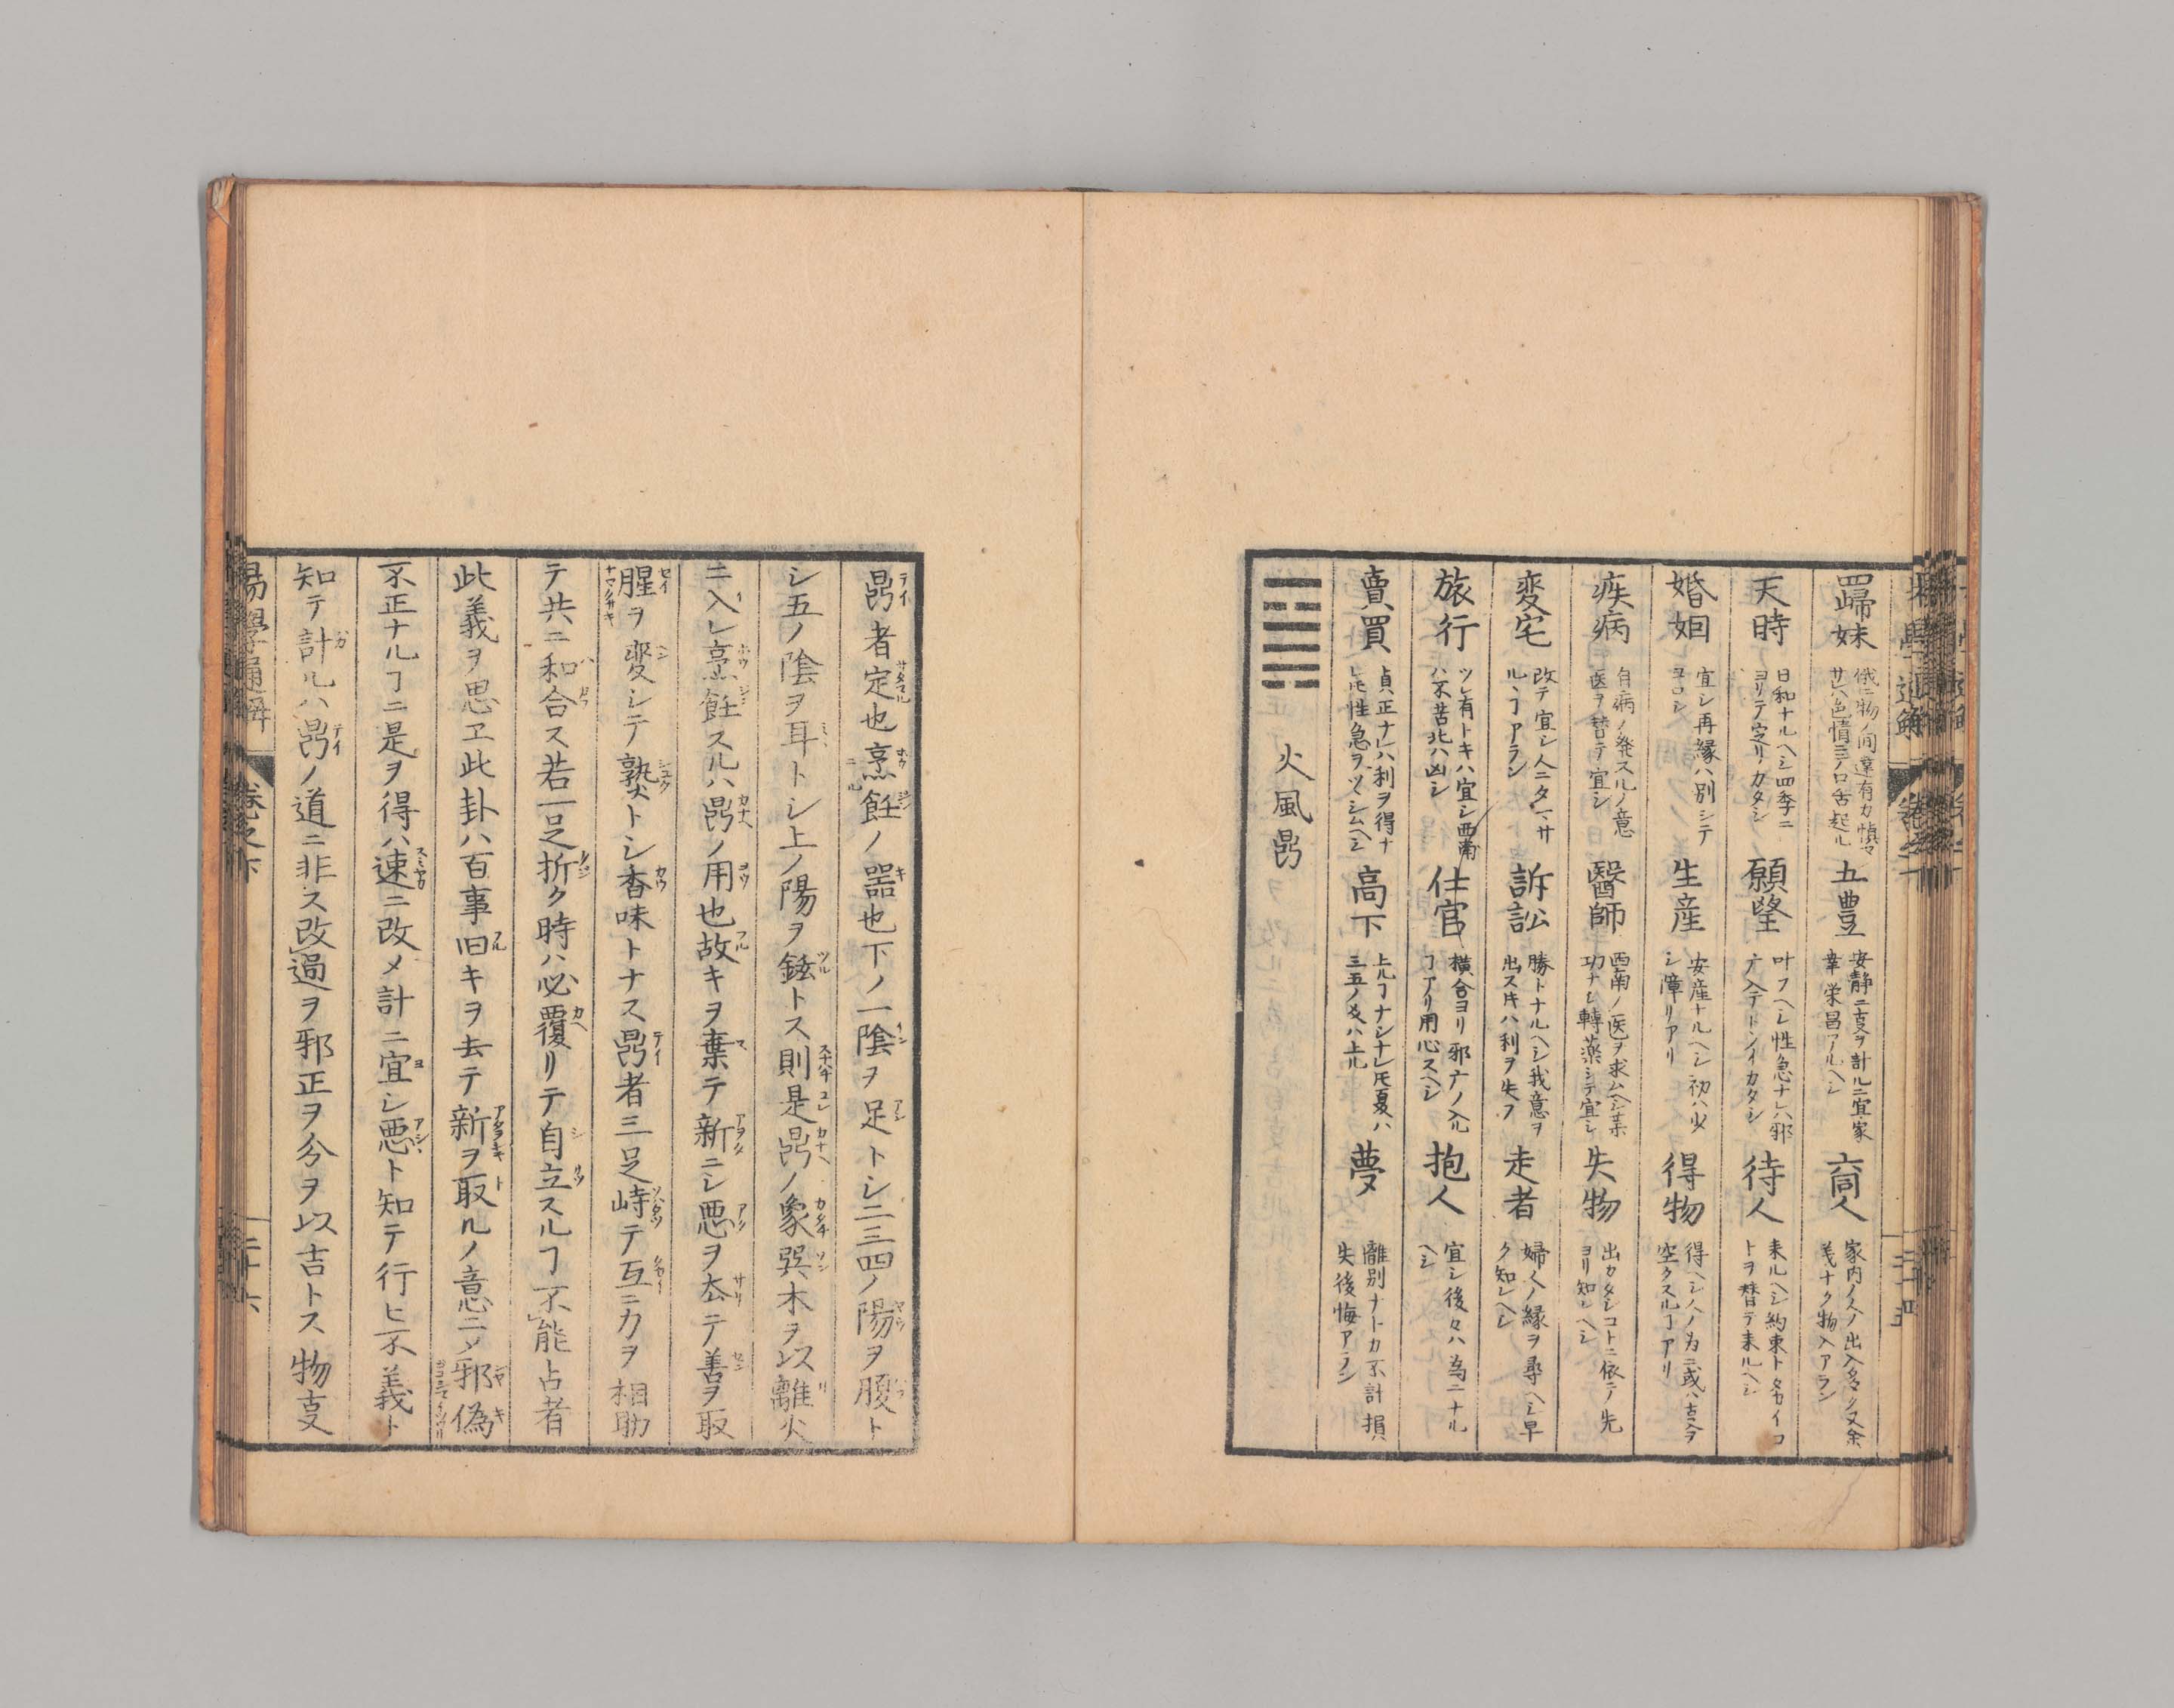 四歸妹 俄ニ物ノ間違有カ慎マ
サレハ色情ニテ口舌起ル
五豊 安静ニ支ヲ計ルニ宜家
幸栄昌アルヘシ
六同人 家内ノ人ノ出入多シ又余
義ナク物入アラン
天時 日和ナルヘシ四季ニ
ヨリテ定リカタシ
願望 叶フヘシ性急ナレハ邪
ナ入テトヽノイカタシ
待人 来ルヘシ約束トタカイコ
トヲ替テ来ルヘシ
婚姻 宜シ再縁ハ別シテ
ヨロシ
生産 安産ナルヘシ初ハ少
シ障リアリ
得物 得ヘシ人ノ為ニ或ハ古金ヲ
空クスルヿアリ
疾病 自病ノ発スルノ意
医ヲ替テ宜シ
醫師 西南ノ医ヲ求ムヘシ薬
功ナシ轉薬シテ宜シ
失物 出カタシコトニ依テ先
ヨリ知レヘシ
変宅 改テ宜シ人ニタヽサ
ルヽヿアラン
訴訟 勝トナルヘシ我意ヲ
出ス片ハ利ヲ失フ
走者 婦人ノ縁ヲ尋ヘシ早
ク知レヘシ
旅行 ツレ有トキハ宜シ西南
ハ不苦北ハ凶シ
仕官 横合ヨリ邪ナノ入ル
ヿアリ用心スヘシ
抱人 宜シ後々ハ為ニナル
ヘシ
賣買 貞正ナレハ利ヲ得ナ
レ𪜈性急ヲツヽシムヘシ
高下 上ルヿナシナレ𪜈夏ハ
三五ノ爻ハ上ル
夢 離別ナトカ不計損
失後悔アラン
䷱ 火風鼎
鼎者定也烹飪ノ器也下ノ一陰ヲ足トシ二三四ノ陽ヲ腹ト
シ五ノ陰ヲ耳トシ上ノ陽ヲ鉉トス則是鼎ノ象巽木ヲ以離火
ニ入レ烹飪スルハ鼎ノ用也故キヲ棄テ新ニシ悪ヲ去テ善ヲ取
腥ヲ変シテ熟トシ香味トナス鼎者三足峙テ互ニ力ヲ相助
テ共ニ和合ス若一足折ク時ハ必覆リテ自立スルヿ不能占者
此義ヲ思エ此卦ハ百事旧キヲ去テ新ヲ取ルノ意ニメ邪偽
不正ナルヿニ是ヲ得ハ速ニ改メ計ニ宜シ悪ト知テ行ヒ不義ト
知テ計ルハ鼎ノ道ニ非ス改過ヲ邪正ヲ分ヲ以吉トス物支
易學通解 巻之下 二十六